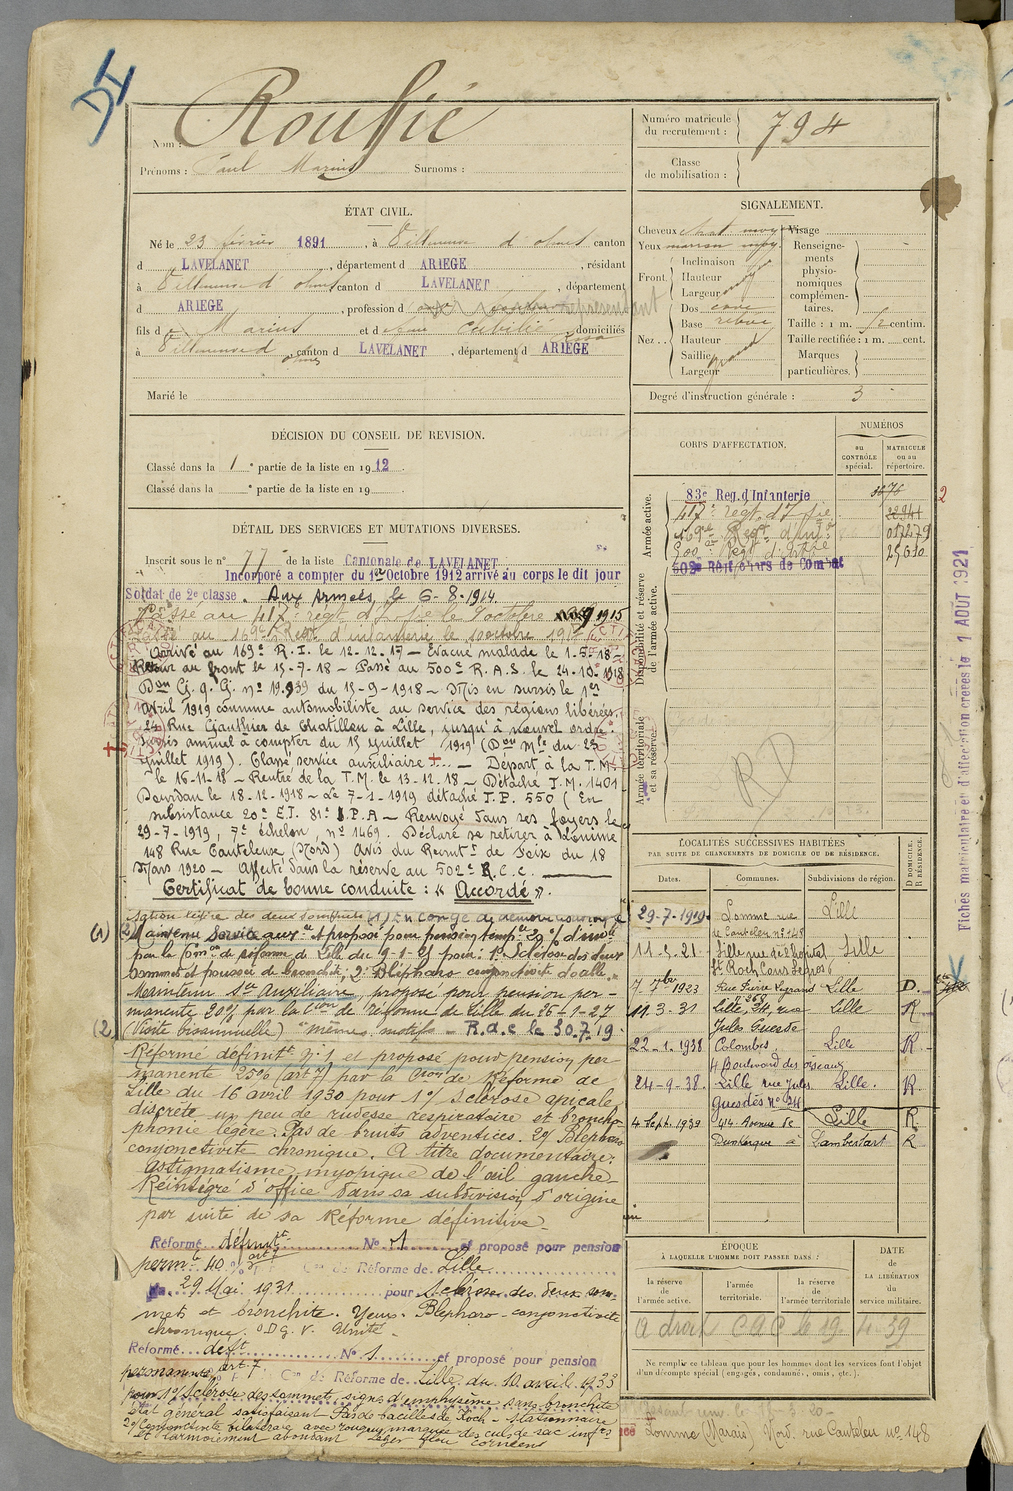 Nom : Roussié
Prénoms : Paul Marius Surnoms :
Numéro matricule du recrutement : 794
Classe de mobilisation :
ÉTAT CIVIL.
Né le 23 février 1891, à Villeneuve d'olmes canton
d LAVELANET, département d ARIEGE, résidant
à Villeneuve d'olmes canton d LAVELANET, département
d ARIEGE, profession d représentant
fils d e Marius et d domiciliés
à Villeneuve d olmes canton d LAVELANET, département d ARIEGE
Marié le
SIGNALEMENT.
Cheveux chat moy Visage
Yeux marron moy.
Front. Inclinaison
Hauteur moy
Largeur
Nez . . Dos cave
Base relevée
Hauteur
Saillie grand
Largeur
Renseignements physionomiques complémentaires.
Taille : 1 m. centim.
Taille rectifiée : 1 m. cent.
Marques particulières.
Degré d'instruction générale : 3
DÉCISION DU CONSEIL DE REVISION.
Classé dans la 1 e partie de la liste en 1912.
Classé dans la e partie de la liste en 19
CORPS D'AFFECTATION.
NUMÉROS
au CONTRÔLE spécial.
MATRICULE ou au répertoire.
Armée active.
83e Reg. d'Infanterie 3676
417e régt. d'Inf ie
169e Regt d'inf ie 012279
500e 25,030
502e Régt chars de Combat
Disponibilité et réserve de l'armée active.
Armée territoriale et sa réserve.
RD
2
DÉTAIL DES SERVICES ET MUTATIONS DIVERSES.
Inscrit sous le n° 77 de la liste Cantonale de LAVELANET
Incorporé a compter du 1er Octobre 1912 arrivé au corps le dit jour
Soldat de 2e classe. Aux Armées, le 6-8-1914.
Passé au 417e régt. d'Inf ie le octobre 1915
Passé au 169e Regt d'infanterie le 10 octobre 1917
Arrivé au 169e R.I. le 12-12-17 — Évacué malade le 1-5-18 —
Retour au front le 15-7-18 — Passé au 500e R.A.S. le 24-10-1918
Don G.q.G. no 19.939 du 15-9-1918 — Mis en sursis le 1er
Avril 1919 comme automobiliste au service des régions libérées,
24 Rue Gauthier de Chatillon à Lille, jusqu'à nouvel ordre.
Sursis annulé à compter du 15 juillet 1919 (Don Mle du 23
juillet 1919). Classé service auxiliaire — Départ à la T.M.
le 16-11-18 — Rentré de la T.M. le 13-12-18 — Détaché T.M. 1401
Dourdan le 18-12-1918 — Le 7-1-1919 détaché T.P. 550 (En
subsistance 20e E.T. 81e P.A — Renvoyé dans ses foyers le
29-7-1919, 7e échelon, no 1469. Déclaré se retirer à Lomme
148 Rue Canteleuse (Nord) Avis du Recrut.t de Foix du 18
Mars 1920 — Affecté dans la réserve au 502e R.C.C.
Certificat de bonne conduite : « Accordé ».
sation légère des deux sommets (1) En congé de démobilisation
(1) (2) Maintenu Service auxre et proposé pour pension tempre 20% d'invté
par la Comon de réforme de Lille du 9-1-25 pour : 1° Sclérose des deux
sommets et poussées de bronchite, 2° Blépharo conjonctivite d'alle
Maintenu Sce Auxiliaire, proposé pour pension per-
manente 20% par la Con de réforme de Lille du 26-1-27
(2) (Visite bisannuelle) "même motif" — R.d.c le 30.7.19
Réformé définitt n°1 et proposé pour pension per-
manente 25% (art 7) par la Con de Réforme de
Lille du 16 avril 1930 pour 1°/ Sclérose apicale
discrète un peu de rudesse respiratoire et broncho-
phonie légère. Pas de bruits adventices. 2°/ Blépharo
conjonctivite chronique. A titre documentaire:
Astigmatisme myopique de l'œil gauche.
Réintégré d'office dans sa subdivision d'origine
par suite de sa Réforme définitive.
Réformé définitt N° 1 et proposé pour pension
permte 40% art 7 Con de Réforme de Lille
du 29 Mai 1931 pour Sclérose des deux som-
mets et bronchite. Yeux. Blépharo-conjonctivite
chronique. ODG. V. Unité.
Réformé deft N° 1 et proposé pour pension
permanente art. 7 Con de Réforme de Lille du 10 avril 1933
pour 1°/ Sclérose des sommets, signe d'emphysème sans bronchite
état général satisfaisant Pas de bacilles de Koch — Stationnaire
2°/ Conjonctivite bilatérale avec rougeur marquée des culs de sac infrs
et larmoiement abondant léger flou cornéens
LOCALITÉS SUCCESSIVES HABITÉES
PAR SUITE DE CHANGEMENTS DE DOMICILE OU DE RÉSIDENCE.
Dates. Communes. Subdivisions de région. D DOMICILE. R RÉSIDENCE.
29-7-1919. Lomme rue de Canteleu n° 148 Lille
11-5-21 Lille rue de l'hôpital St Roch Lille
7 7bre 1923 Rue Pierre Legrand n° 263 Lille D.
11.3.31 Lille, 24, rue Jules Guesde Lille R
22-1-1938 Colombes. 4 Boulevard des oiseaux Lille R.
24-9-38. Lille rue Jules Guesdes n° 24 Lille. R.
4 Sept. 1939 414. Avenue de Lille R
Dunkerque à Lambersart R
ÉPOQUE
À LAQUELLE L'HOMME DOIT PASSER DANS :
la réserve de l'armée active.
l'armée territoriale.
la réserve de l'armée territoriale
DATE DE LA LIBÉRATION du service militaire.
a droit CAC le 19 4-39
Ne remplir ce tableau que pour les hommes dont les services font l'objet
d'un décompte spécial (engagés, condamnés, omis, etc.).
Lomme (Marais) Nord. rue Canteleu no 148
Fiches matriculaire et d'affectation créées le 1 AOUT 1921